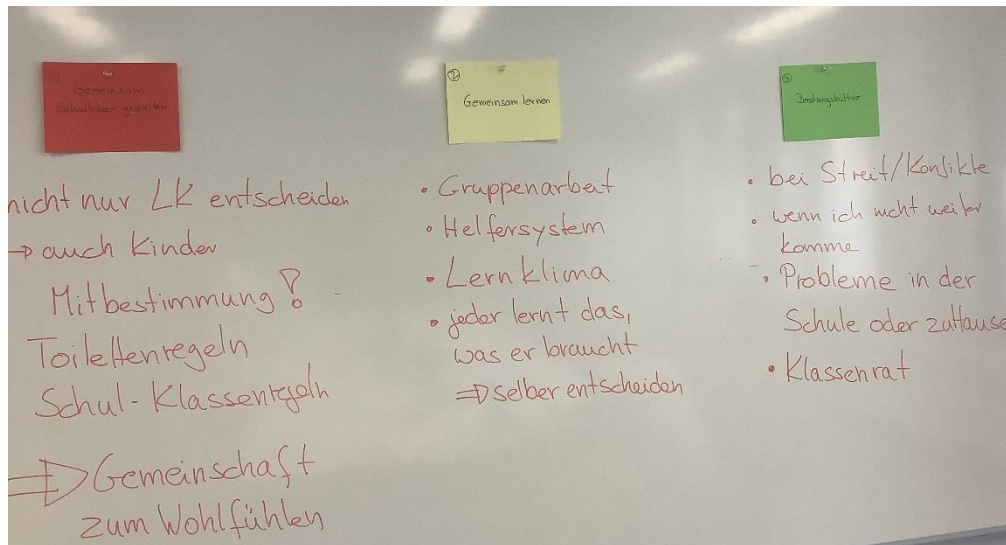 Gemeinsam
Schulleben gestalten
nicht nur LK entscheiden
→ auch Kinder
Mitbestimmung!
Toilettenregeln
Schul-Klassenregeln
⇒ Gemeinschaft
zum Wohlfühlen
②
Gemeinsam lernen
• Gruppenarbeit
• Helfersystem
• Lernklima
• jeder lernt das,
was er braucht
⇒ selber entscheiden
Beratungskultur
• bei Streit/Konflikte
• wenn ich nicht weiter
komme
• Probleme in der
Schule oder zuHause
• Klassenrat